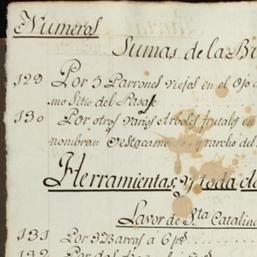 Numeros
Sumas de la
129 Por 3 Parrones viejos en el
mo Sitio del
130 Por otros varios Arboles frutales en
nombran
Herramientas, y toda
Lavor de Sta Catalin
131 Por 3 Barras á 6 ps
132 Por dos